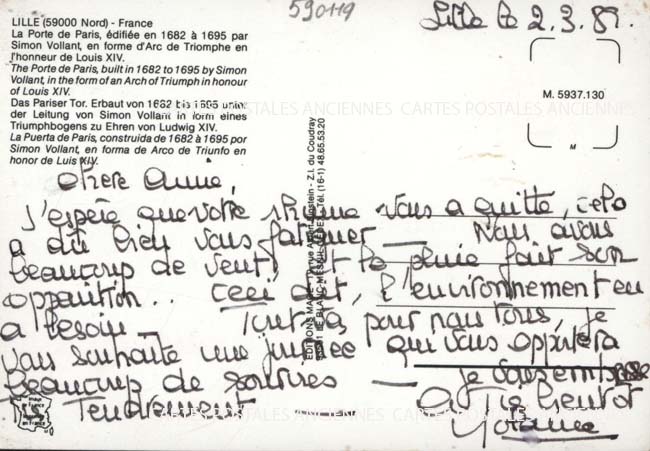 LILLE (59000 Nord) - France
La Porte de Paris, édifiée en 1682 à 1695 par
Simon Vollant, en forme d'Arc de Triomphe en
l'honneur de Louis XIV.
The Porte de Paris, built in 1682 to 1695 by Simon
Vollant, in the form of an Arch of Triumph in honour
of Louis XIV.
Das Pariser Tor. Erbaut von 1682 bis 1695 unter
der Leitung von Simon Vollant in form eines
Triumphbogens zu Ehren von Ludwig XIV.
La Puerta de Paris, construida de 1682 à 1695 por
Simon Vollant, en forma de Arco de Triunfo en
honor de Luis XIV.
590119
Lille le 2.3.89.
M. 5937.130
M
CARTES POSTALES ANCIENNES CARTES POSTALES ANCIENNES
Chère Annie,
J'espère que votre rhume vous a quitté, cela
a dû bien vous fatiguer _ Nous avons
beaucoup de vent, et la pluie fait son
apparition.. ceci dit, l'environnement en
a besoin _ pour nous tous, je
vous souhaite une journée qui vous apportera
beaucoup de sourires _ je vous embrasse
Tendrement à bientôt
Yvonne
EDITIONS Z.I. du Coudray
LE BLANC-MESNIL Tél. (16-1) 48.65.53.20
CARTES POSTALES ANCIENNES CARTES POSTALES ANCIENNES